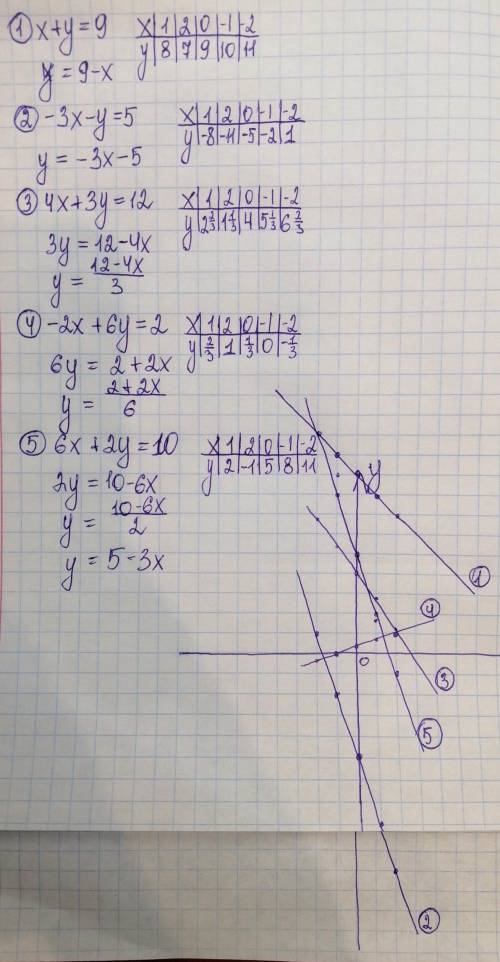 ① x+y=9
x|1|2|0|-1|-2
y|8|7|9|10|11
y = 9-x
② -3x-y=5
x|1|2|0|-1|-2
y|-8|-11|-5|-2|1
y = -3x-5
③ 4x+3y=12
x|1|2|0|-1|-2
y|2 2/3|1 1/3|4|5 1/3|6 2/3
3y = 12-4x
y = 12-4x/3
④ -2x+6y=2
x|1|2|0|-1|-2
y|2/3|1|1/3|0|-1/3
6y = 2+2x
y = 2+2x/6
⑤ 6x+2y=10
x|1|2|0|-1|-2
y|2|-1|5|8|11
2y = 10-6x
y = 10-6x/2
y = 5-3x
y
①
④
0
③
⑤
②